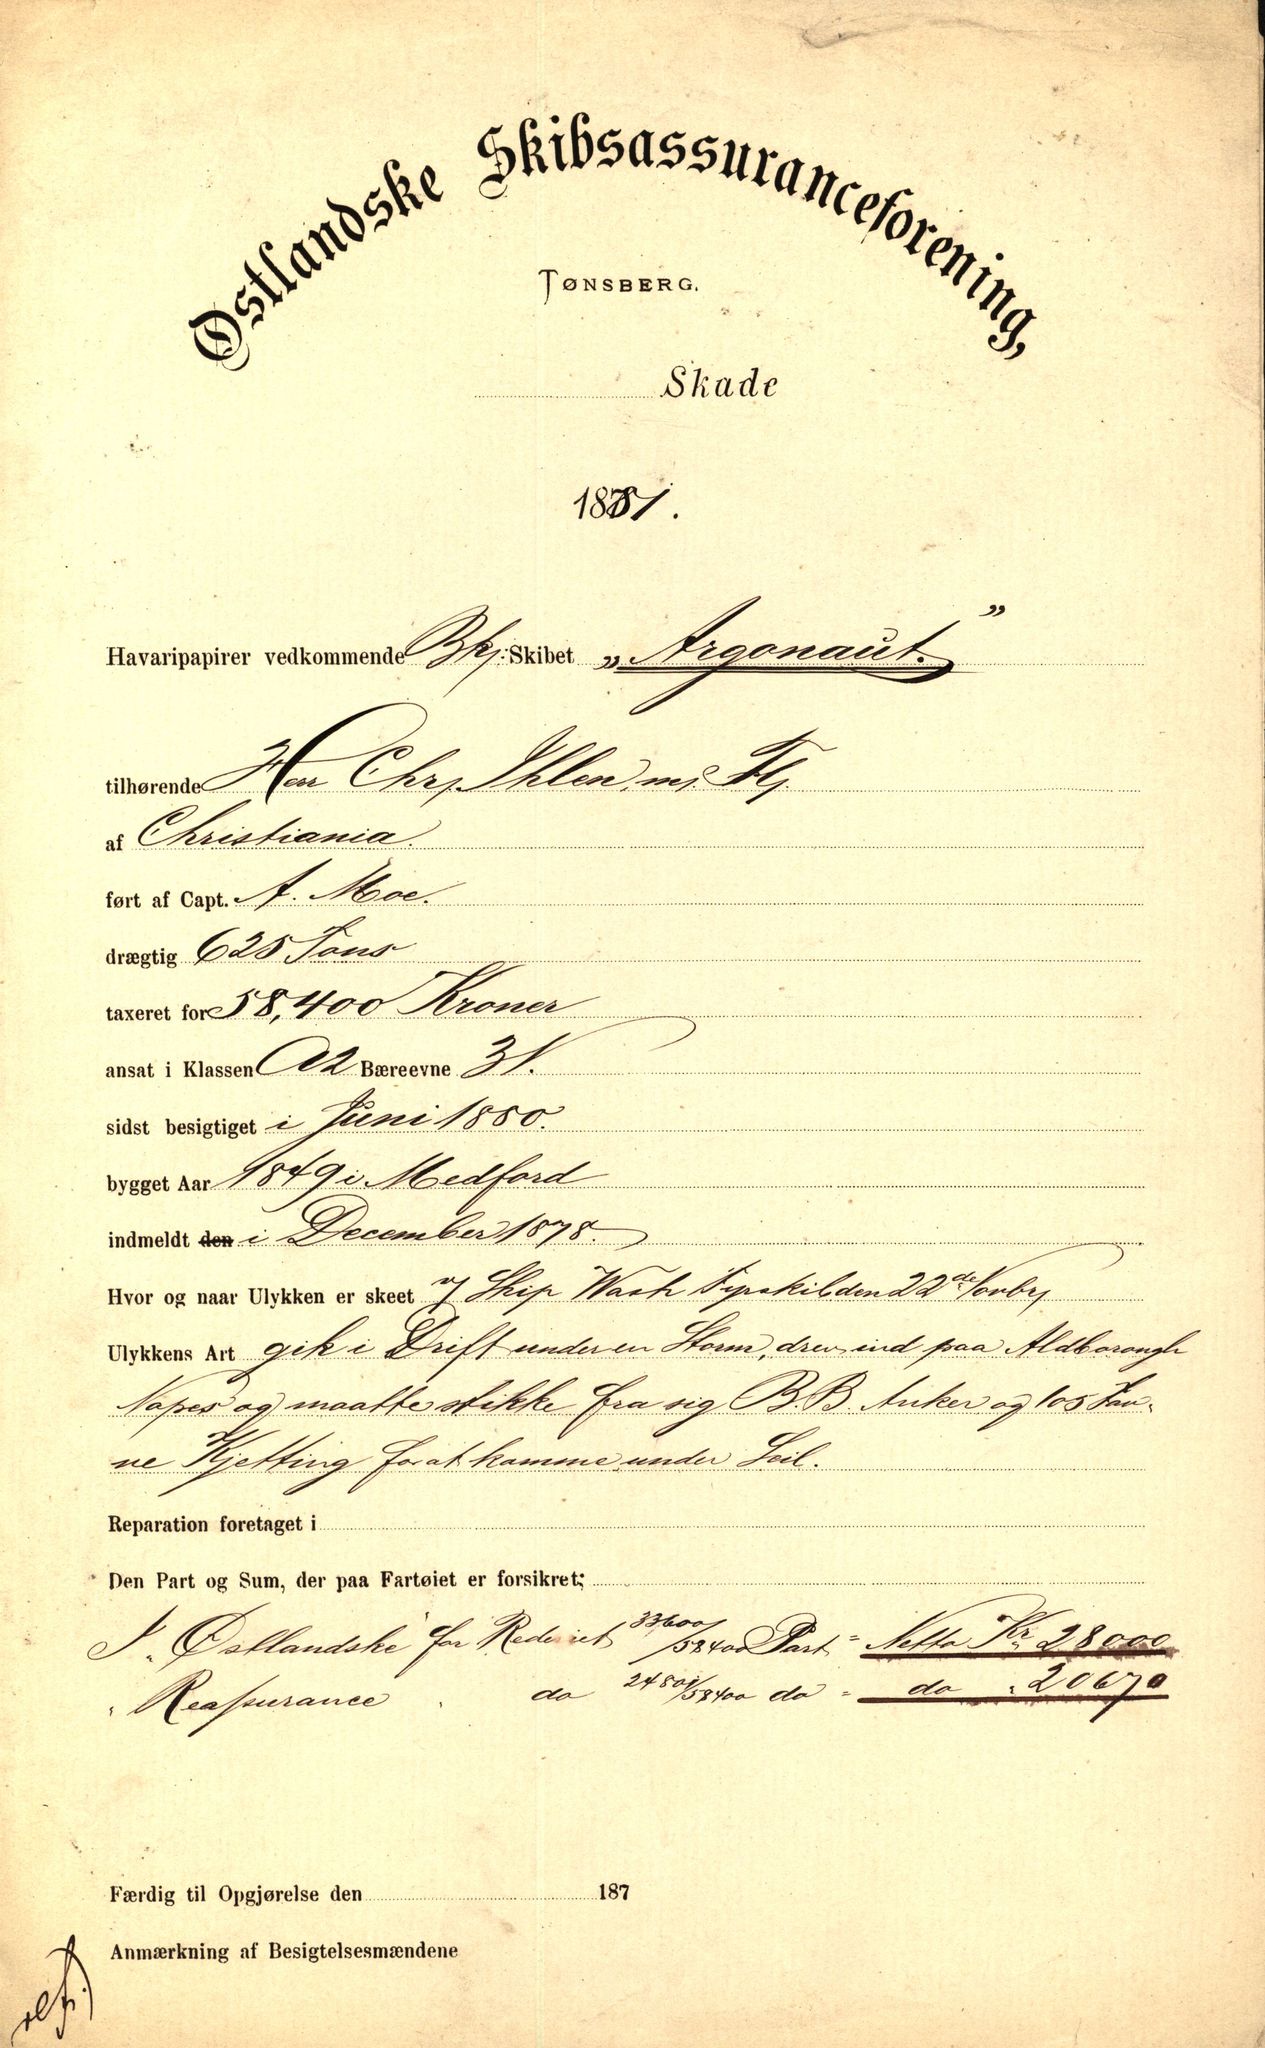 Østlandske Skibsassuranceforening,
TØNSBERG.
Skade
1881.
Havaripapirer vedkommende Bkj: Skibet „Argonaut.”
tilhørende Herr Chr. Ihlen, m. Fl.
af Christiania.
ført af Capt. A. Moe.
drægtig 625 Tons
taxeret for 58,400 Kroner
ansat i Klassen A2 Bæreevne 3/1.
sidst besigtiget i Juni 1880.
bygget Aar 1849 i Medford
indmeldt den i December 1878.
Hvor og naar Ulykken er skeet v/ Ship Wash Fyrskib den 22de Novbr
Ulykkens Art gik i Drift under en Storm, drev ind paa Aldborough
Napes og maatte stikke fra sig B.B. Anker og 105 Fav-
ne Kjetting for at komme under Seil.
Reparation foretaget i
Den Part og Sum, der paa Fartøiet er forsikret;
I „Østlandske” for Rederiet 33600/58400 Part = Netto Kr. 28000
„ Reassurance „ do 24801/58400 do = do „ 20670
Færdig til Opgjørelse den 187
Anmærkning af Besigtelsesmændene